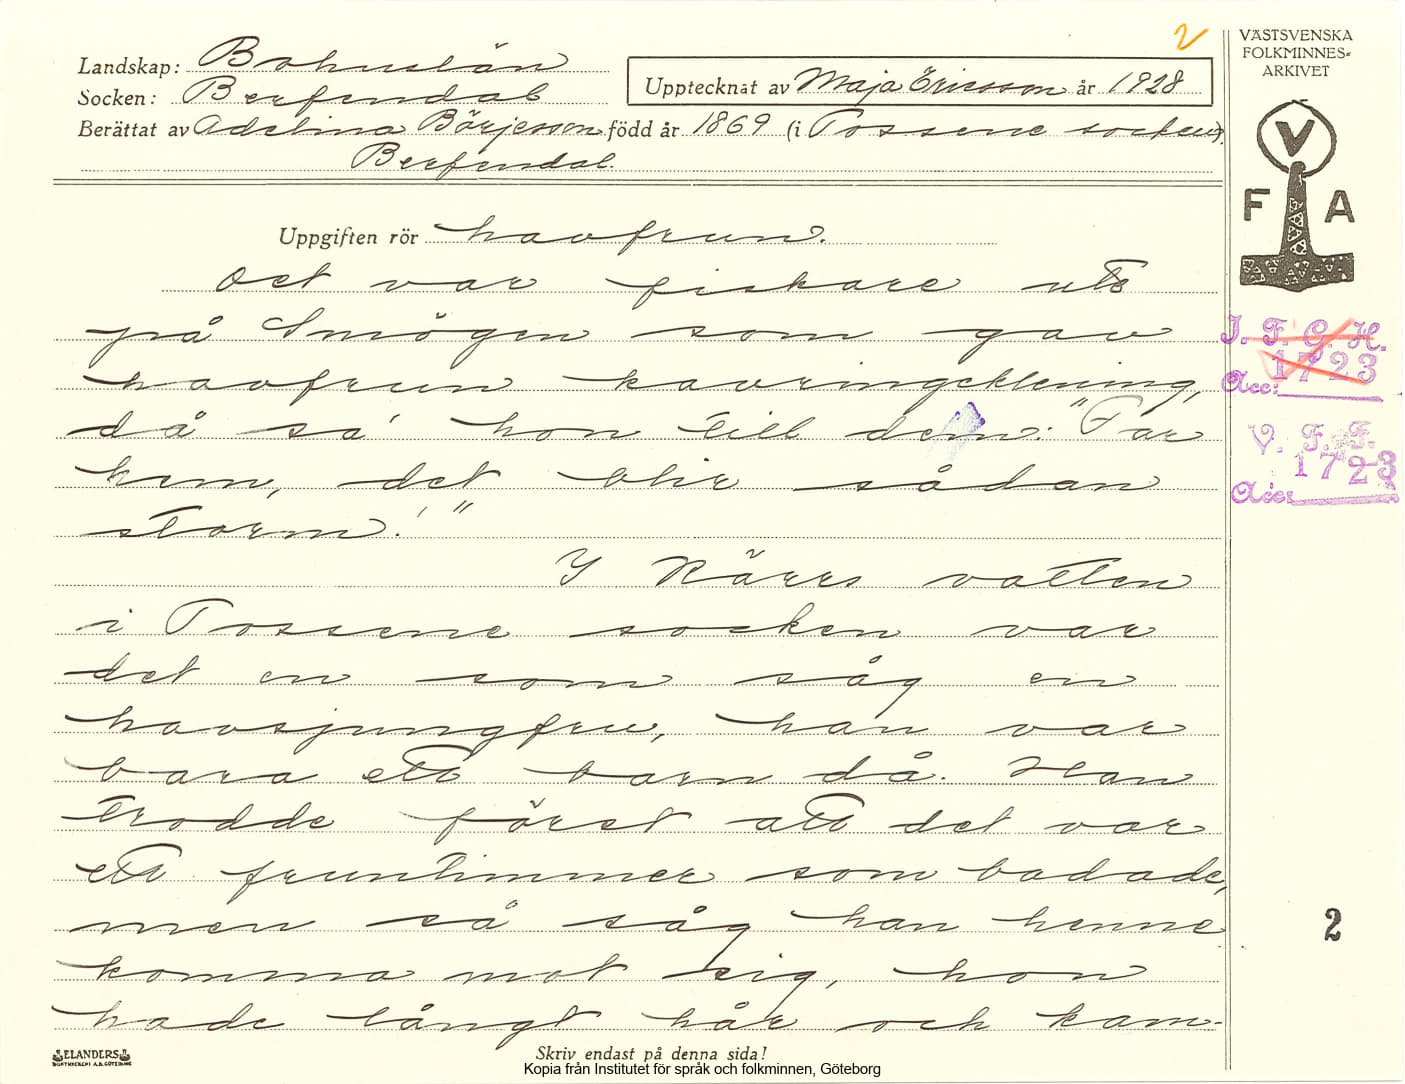 2
VÄSTSVENSKA
FOLKMINNES-
ARKIVET
Landskap: Bohuslän
Upptecknat av Maja Ericsson år 1928
Socken: Berfendal
Berättat av Adelina Börjesson född år 1869 (i Tossene socken).
Berfendal.
V
F A
Uppgiften rör havfrun.
Det var fiskare ute
på Smögen som gav
havfrun kavringeklening,
då sa' hon till dem: "Far
hem, det blir sådan
storm!"
I Kärrs vatten
i Tossene socken var
det en som såg en
havsjungfru, han var
bara ett barn då. Han
trodde först att det var
ett fruntimmer som badade,
men så såg han henne
komma mot sig, hon
hade långt hår och kam-
I. F. G. H.
1723
Acc:
V. F. F.
1723
Acc:
2
ELANDERS
BOKTRYCKERI A.B. GÖTEBORG
Skriv endast på denna sida!
Kopia från Institutet för språk och folkminnen, Göteborg